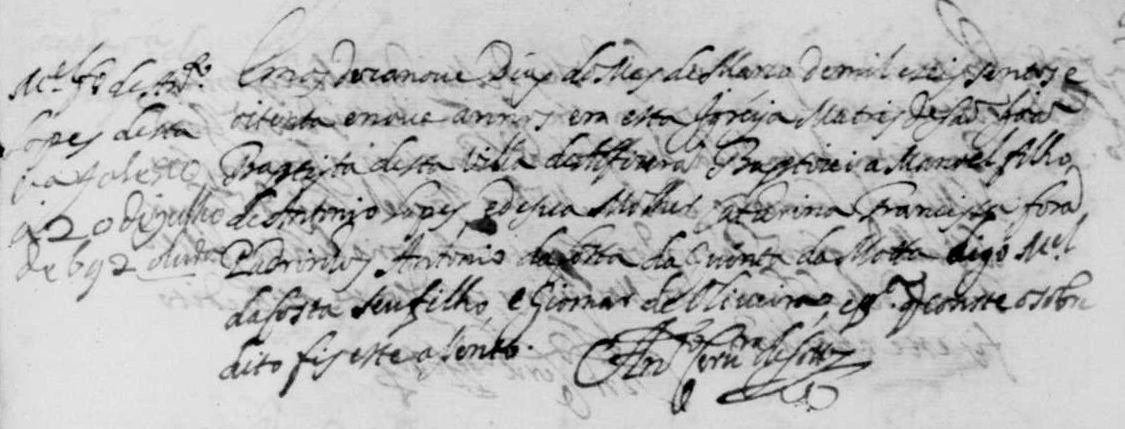 M.el f.o de Ant.o
Lopes desta
faleseo
a 20 de julho
de 692
Em os dezanove Dias do Mes de Marco de mil e seis sentos e
oitenta e nove annos em esta Igreja Matris de São João
Baptista desta Villa de Baptizei a Manoel filho
de Antonio Lopes, e de sua Molher Catarina Francisca forão
Padrinhos Antonio da Costa da Quinta da Motta digo M.el
da Costa seu filho, e Giomar de Oliveira, e p.a q conste o sobre
dito fis este asento.